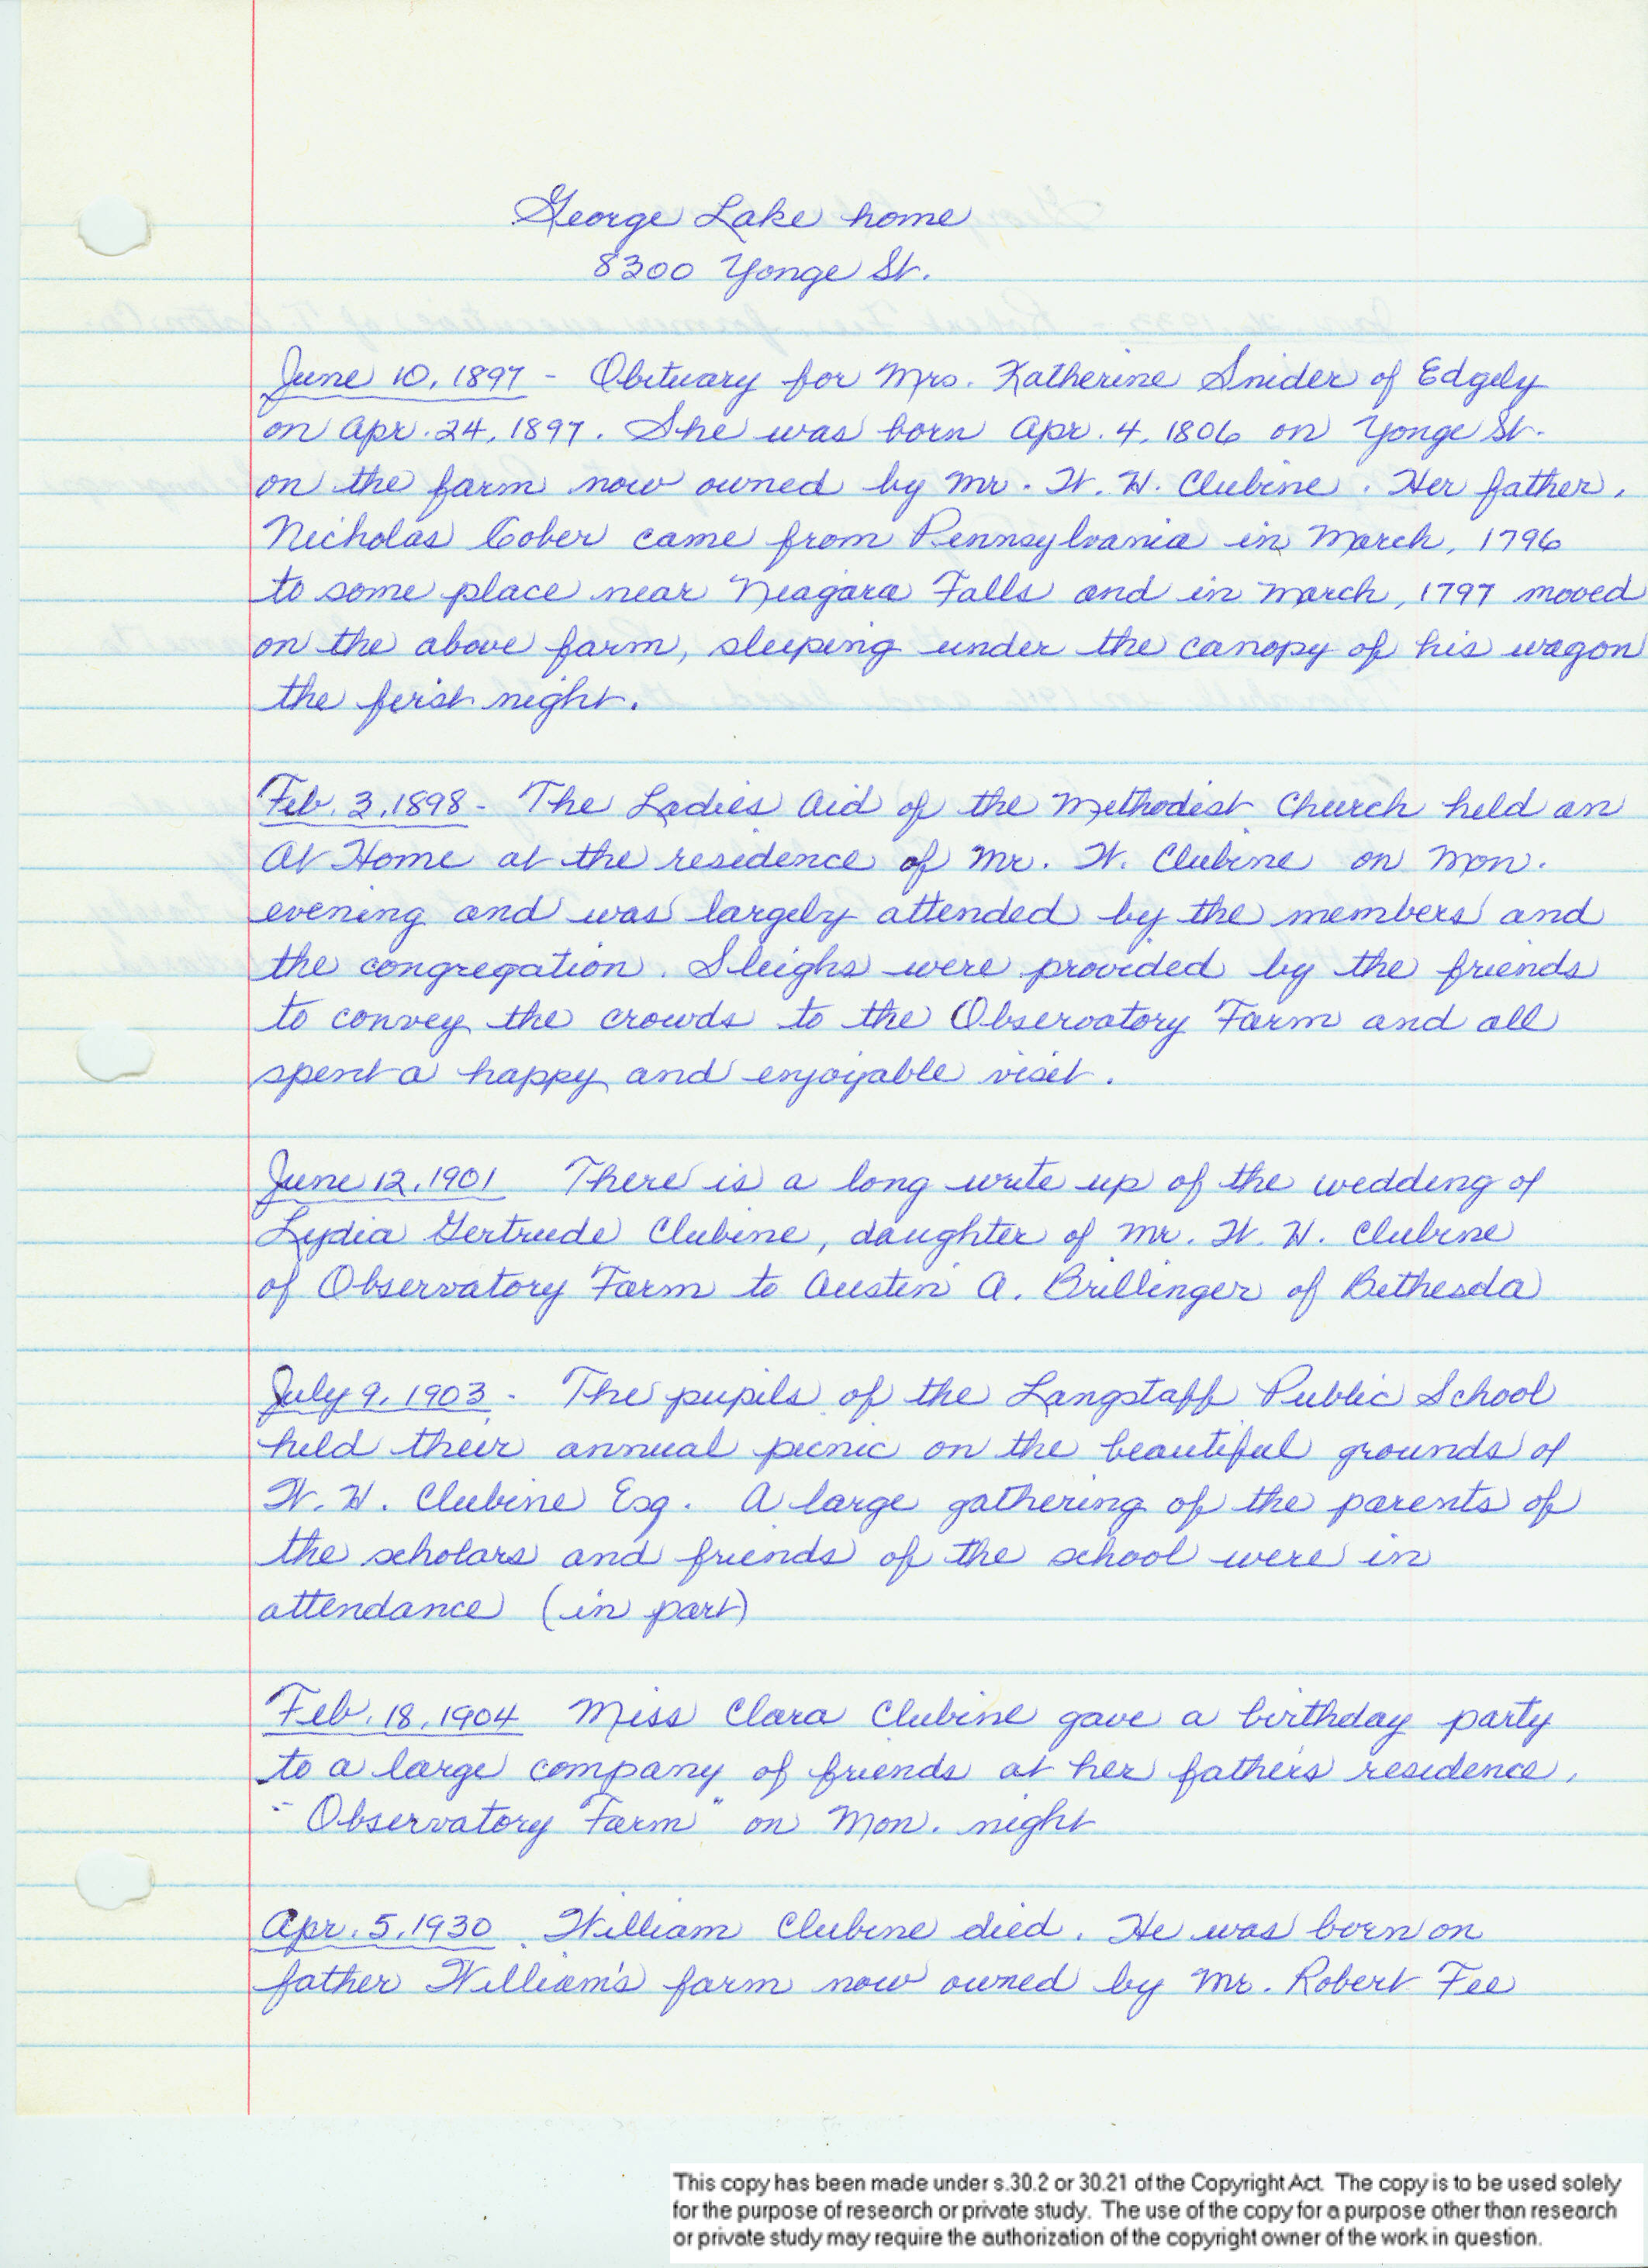 George Lake home
8300 Yonge St.
June 10, 1897 - Obituary for Mrs. Katherine Snider of Edgely
on Apr. 24, 1897. She was born Apr. 4, 1806 on Yonge St.
on the farm now owned by Mr. W. H. Clubine. Her father,
Nicholas Cober came from Pennsylvania in March, 1796
to some place near Niagara Falls and in March, 1797 moved
on the above farm, sleeping under the canopy of his wagon
the first night.
Feb. 3, 1898 - The Ladies Aid of the Methodist Church held an
At Home at the residence of Mr. W. Clubine on Mon.
evening and was largely attended by the members and
the congregation. Sleighs were provided by the friends
to convey the crowds to the Observatory Farm and all
spent a happy and enjoyable visit.
June 12, 1901 There is a long write up of the wedding of
Lydia Gertrude Clubine, daughter of Mr. W. H. Clubine
of Observatory Farm to Austin A. Brillinger of Bethesda
July 9, 1903 - The pupils of the Langstaff Public School
held their annual picnic on the beautiful grounds of
W. H. Clubine Esq. A large gathering of the parents of
the scholars and friends of the school were in
attendance (in part)
Feb. 18, 1904 Miss Clara Clubine gave a birthday party
to a large company of friends at her father's residence,
"Observatory Farm" on Mon. night
Apr. 5, 1930 William Clubine died. He was born on
father William's farm now owned by Mr. Robert Fee
This copy has been made under s.30.2 or 30.21 of the Copyright Act. The copy is to be used solely
for the purpose of research or private study. The use of the copy for a purpose other than research
or private study may require the authorization of the copyright owner of the work in question.